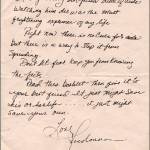 Watching him die was the most
frightening experience of my life.
Right now there is no cure for aids
but there is a way to stop it from
spreading.
Don't let fear keep you from knowing
the facts.
Read this booklet then give it to
your best friend. It just might save
his or her life... it just might
save your own.
Love,